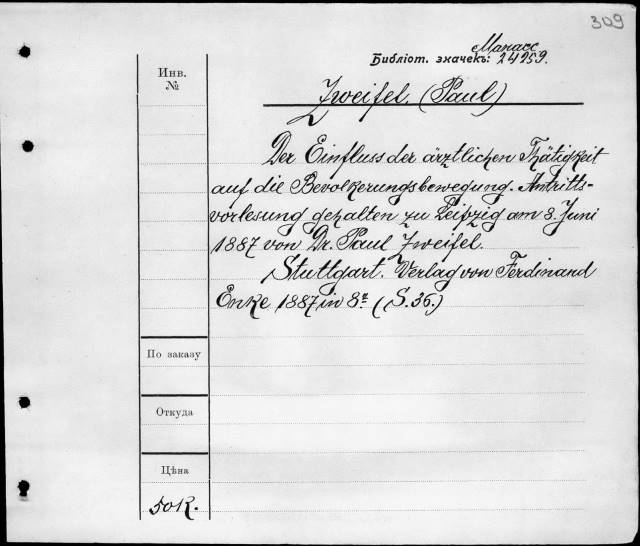 309
Манасс
Библіот. значекъ: 24959.
Инв.
№
Zweifel. (Paul)
Der Einfluss der ärztlichen Thätigkeit
auf die Bevolkerungsbewegung. Antritts-
vorlesung gehalten zu Leipzig am 8. Juni
1887 von Dr. Paul Zweifel.
Stuttgart. Verlag von Ferdinand
Enke 1887 in 8º (S. 36.)
По заказу
Откуда
Цѣна
50 К.